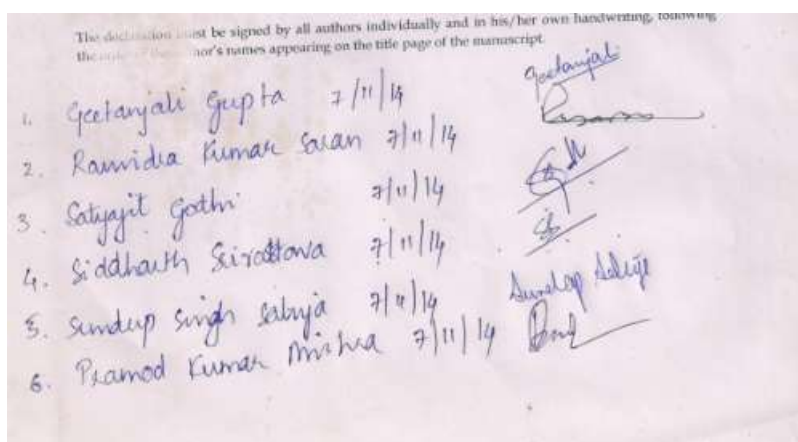 The declaration must be signed by all authors individually and in his/her own handwriting, following
the order of the author's names appearing on the title page of the manuscript.
1. Geetanjali Gupta 7/11/14 Geetanjali
2. Ravindra Kumar Saran 7/11/14
3. Satyajit Gothi 7/11/14
4. Siddharth Srivastava 7/11/14
5. Sundup Singh Saluja 7/11/14 Sundup Saluja
6. Pramod Kumar Mishra 7/11/14